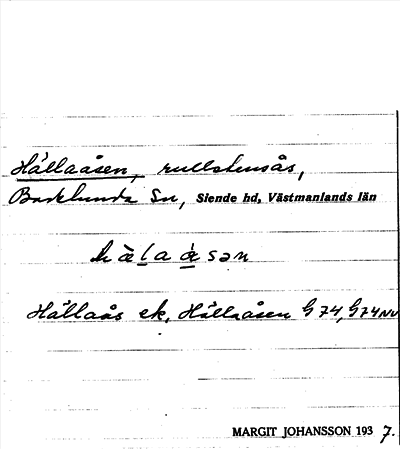 Hällaåsen, rullstensås,
Badelunda Sn, Siende hd, Västmanlands län
hälaåsən
Hällaås ek, Hällaåsen G 74, G 74 NV
MARGIT JOHANSSON 1937.